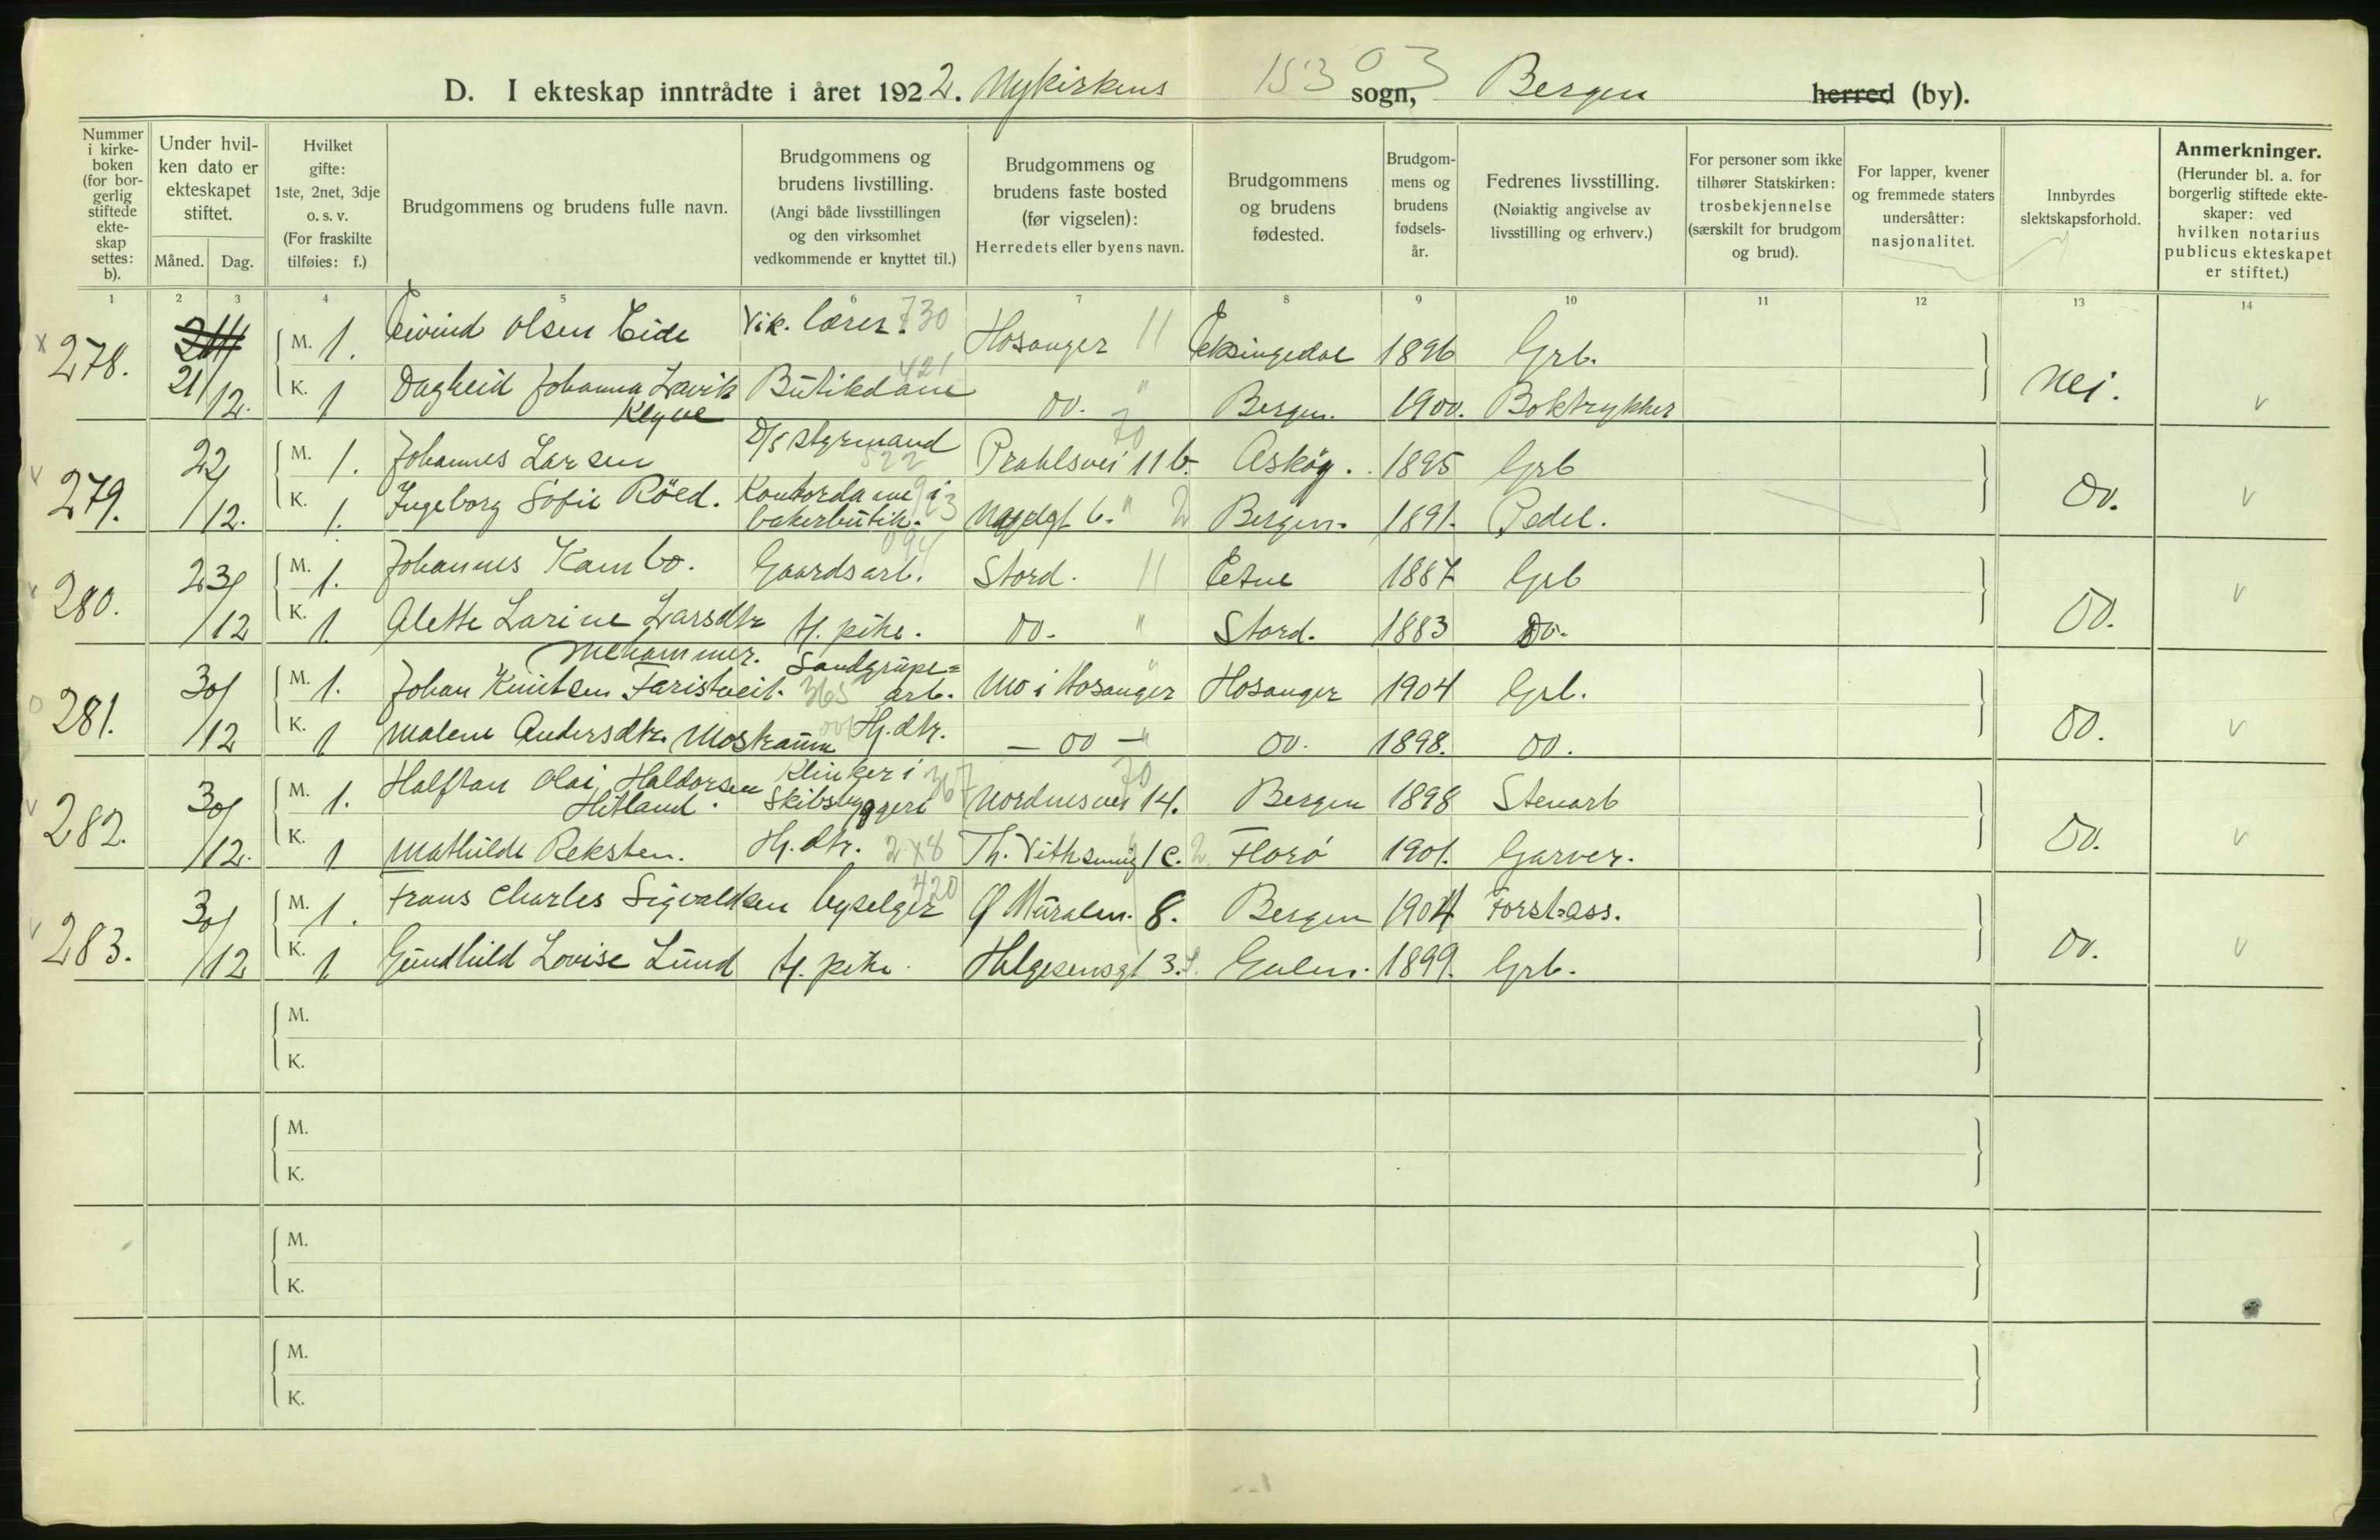 D. I ekteskap inntrådte i året 1922. Nykirkens 15303 sogn, Bergen herred (by).
Nummer i kirke-boken (for bor-gerlig stiftede ekte-skap settes: b).
Under hvil-ken dato er ekteskapet stiftet.
Måned. Dag.
Hvilket gifte: 1ste, 2net, 3dje o. s. v. (For fraskilte tilføies: f.)
Brudgommens og brudens fulle navn.
Brudgommens og brudens livstilling. (Angi både livsstillingen og den virksomhet vedkommende er knyttet til.)
Brudgommens og brudens faste bosted (før vigselen): Herredets eller byens navn.
Brudgommens og brudens fødested.
Brudgom-mens og brudens fødsels-år.
Fedrenes livsstilling. (Nøiaktig angivelse av livsstilling og erhverv.)
For personer som ikke tilhører Statskirken: trosbekjennelse (særskilt for brudgom og brud).
For lapper, kvener og fremmede staters undersåtter: nasjonalitet.
Innbyrdes slektskapsforhold.
Anmerkninger. (Herunder bl. a. for borgerlig stiftede ekte-skaper: ved hvilken notarius publicus ekteskapet er stiftet.)
1 2 3 4 5 6 7 8 9 10 11 12 13 14
x 278. 21/12. M. 1. Eivind Olsen Eide Vik. lærer. 730 Hosanger 11 Eksingedal 1896 Grb. Nei.
K. 1 Dagheid Johanna Lavik Kleyve Butikdame 421 Do. " Bergen. 1900. Boktrykker v
v 279. 22/12. M. 1. Johannes Larsen D/s styrmand 522 Prahlsvei 11 b. 70 Askøy. 1895 Grb Do. v
K. 1. Ingeborg Sofie Röed. Kontordame i bakerbutik. 913 Nagelgt 6. " 2 Bergen. 1891. Pedel.
v 280. 23/12 M. 1. Johannes Kambo. Gaardsarb. 094 Stord. 11 Etne 1887 Grb Do. v
K. 1. Alette Larine Larsdtr Mehammer. Tj. pike. Do. " Stord. 1883 Do.
o 281. 30/12 M. 1. Johan Knutsen Faristveit. Sandgrupe= arb. 365 Mo i Hosanger " Hosanger 1904 Grb. Do. v
K. 1 Malene Andersdtr. Mostraum Hj. dtr. — Do — " Do. 1898. Do.
v 282. 30/12. M. 1. Halfdan Olai Haldorsen Hitland. Klinker i Skibsbyggeri 367 Nordnesvei 14. 70 Bergen 1898 Stenarb Do. v
K. 1 Mathilde Reksten. Hj. dtr. 2x8 Th. Vithsmug 1 c. 2 Florö 1901. Garver.
v 283. 30/12 M. 1. Frans Charles Sigvaldsen byselger 420 Ø Muralm. 8. Bergen 1904 Forst=ass. Do. v
K. 1 Gundhild Lovise Lund Tj. pike. Helgesensgt 3. Gulen. 1899. Grb.
M.
K.
M.
K.
M.
K.
M.
K.